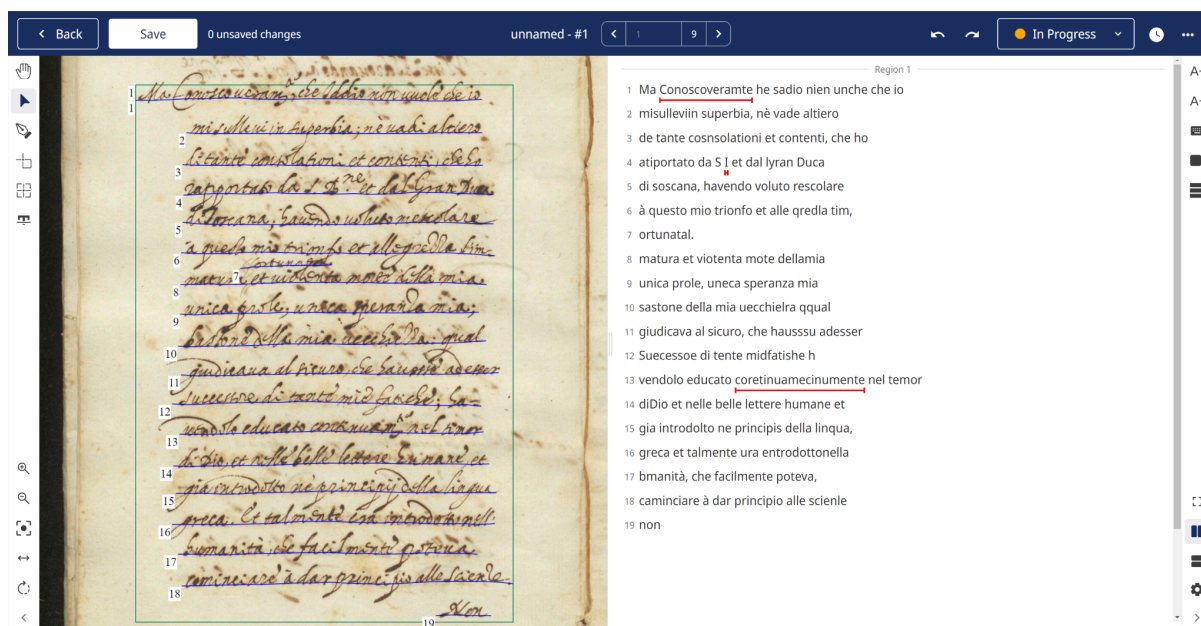 Back
Save
0 unsaved changes
unnamed - #1
1
9
In Progress
1 Ma che Iddio non uuole che io
1
2 mi sulleui in superbia; nè uadi altiero
3 di tante consolationi et contenti, che ho
4 da S. et dal Gran Duca
5 di Toscana, hauendo uoluto mescolare
6 a questo mio trionfo et allegrezza
7 fortunata
8 matura, et uiolenta morte della mia
9 unica prole, unica speranza mia;
10 bastone della mia uecchiezza, qual
11 giudicaua al sicuro, che hauesse ad esser
12 successore di tante mie fatiche; ha-
13 uendolo educato continuam.te nel timor
14 di Dio, et nelle belle lettere humane, et
15 gia introdotto nè principij della lingua
16 greca. Et talmente era introdotto nell'
17 humanità, che facilmente poteua
18 cominciare à dar principio alle scienze
19 Non
Region 1
1 Ma Conoscoveramte he sadio nien unche che io
2 misulleviin superbia, nè vade altiero
3 de tante cosnsolationi et contenti, che ho
4 atiportato da S I et dal lyran Duca
5 di soscana, havendo voluto rescolare
6 à questo mio trionfo et alle qredla tim,
7 ortunatal.
8 matura et viotenta mote dellamia
9 unica prole, uneca speranza mia
10 sastone della mia uecchielra qqual
11 giudicava al sicuro, che hausssu adesser
12 Suecessoe di tente midfatishe h
13 vendolo educato coretinuamecinumente nel temor
14 diDio et nelle belle lettere humane et
15 gia introdolto ne principis della linqua,
16 greca et talmente ura entrodottonella
17 bmanità, che facilmente poteva,
18 caminciare à dar principio alle scienle
19 non